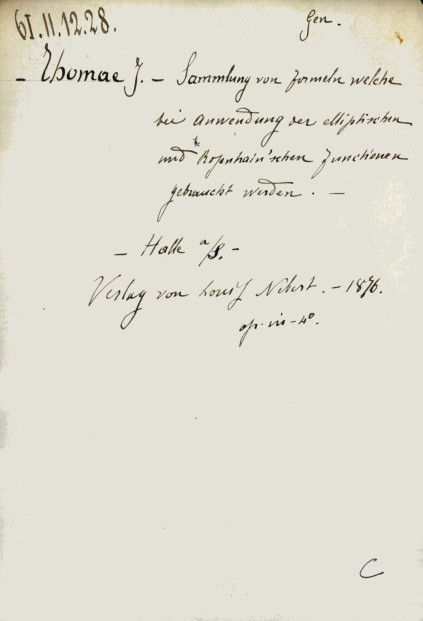 61.11.12.28.
Gen.
- Thomae J. - Sammlung von Formeln welche
bei Anwendung der elliptischen
und Rosenhain'schen Functionen
gebraucht werden. -
- Halle a/S. -
Verlag von Louis Nebert. - 1876.
op. in - 4°.
C